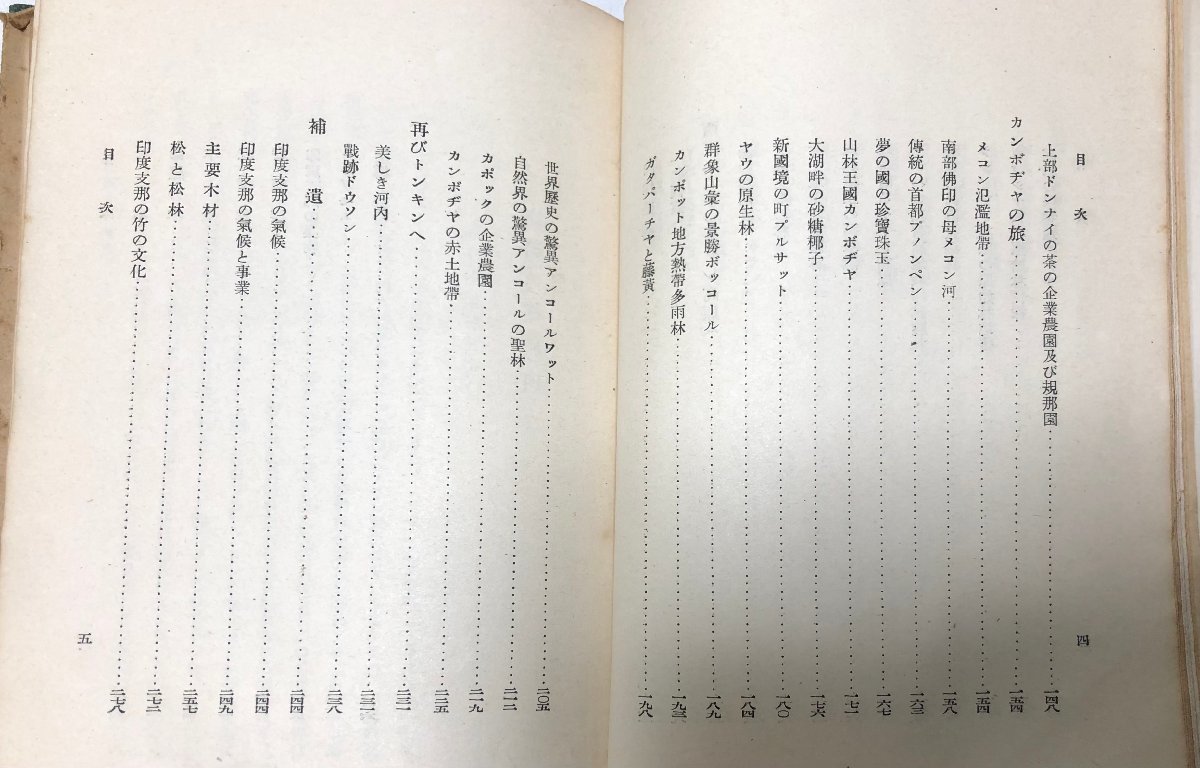 目次
上部ドンナイの茶の企業農園及び規那園……一四八
カンボヂヤの旅……一五四
メコン氾濫地帶……一五四
南部佛印の母メコン河……一五八
傳統の首都プノンペン……一六三
夢の國の珍寶珠玉……一六七
山林王國カンボヂヤ……一七一
大湖畔の砂糖椰子……一七六
新國境の町プルサット……一八〇
ヤウの原生林……一八四
群象山彙の景勝ボッコール……一八九
カンポット地方熱帶多雨林……一九三
ガタパーチヤと藤黃……一九八
四
世界歷史の驚異アンコールワット……二〇五
自然界の驚異アンコールの聖林……二一二
カポックの企業農園……二一九
カンボヂヤの赤土地帶……二二五
再びトンキンへ……二三一
美しき河内……二三一
戰跡ドウソン……二三八
補遺……二四四
印度支那の氣候……二四四
印度支那の氣候と事業……二四九
主要木材……二五七
松と松林……二七二
印度支那の竹の文化……二七八
目次
五